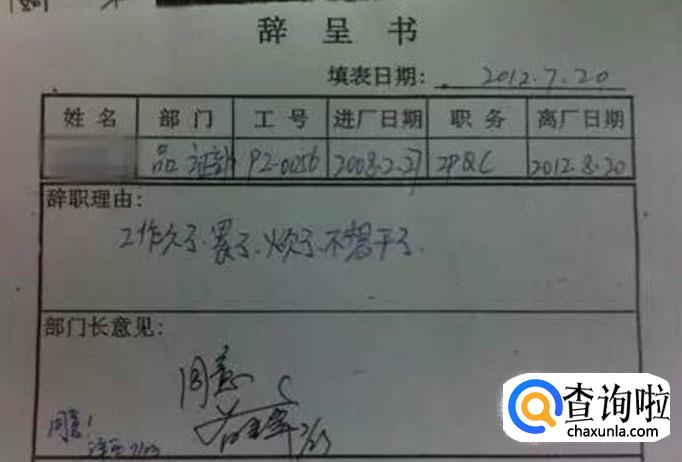 辞呈书
填表日期: 2012.7.20
姓名 部门 工号 进厂日期 职务 离厂日期
品证部 PZ-0056 2008.2.27 IPQC 2012.8.20
辞职理由:
工作久了.累了.烦了.不想干了.
部门长意见:
同意
同意!
查询啦
chaxunla.com